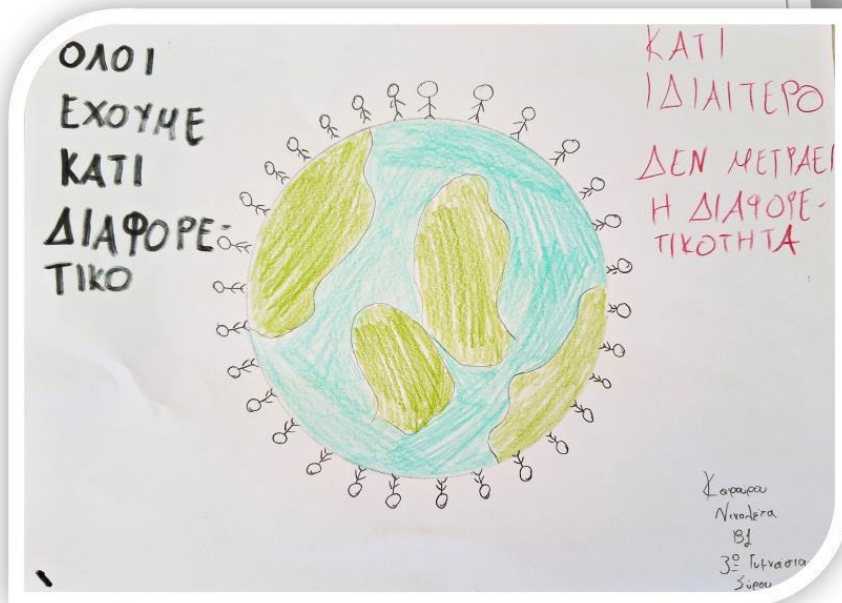 ΟΛΟΙ
ΕΧΟΥΜΕ
ΚΑΤΙ
ΔΙΑΦΟΡΕ-
ΤΙΚΟ
ΚΑΤΙ
ΙΔΙΑΙΤΕΡΟ
ΔΕΝ ΜΕΤΡΑΕΙ
Η ΔΙΑΦΟΡΕ-
ΤΙΚΟΤΗΤΑ
Νικολέτα
Β1
3º Γυμνάσιο
Σύρου